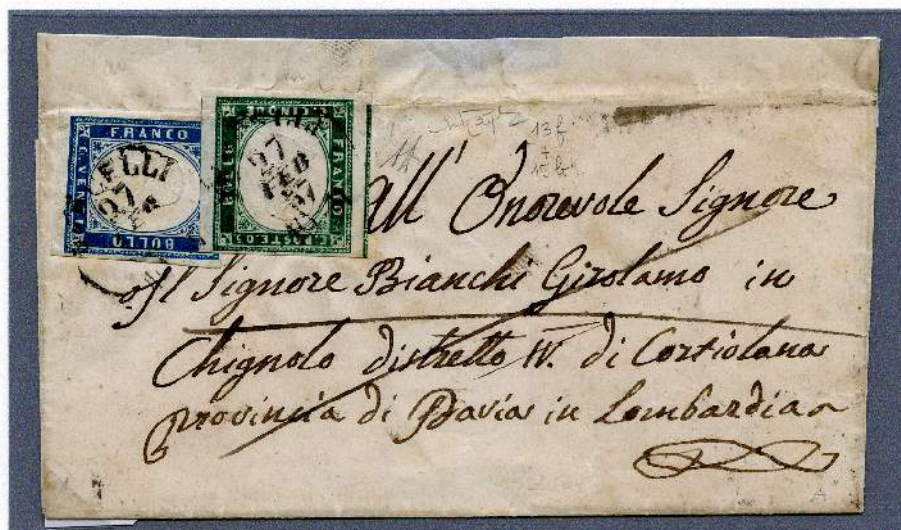 FRANCO
C. VENTI
BOLLO
27
FEB
C. CINQUE
FRANCO
POSTE
BOLLO
27
FEB
57
13f
+
15
All' Onorevole Signore
Il Signore Bianchi Girolamo in
Chignolo distretto IV. di Corteolona
provincia di Pavia in Lombardia